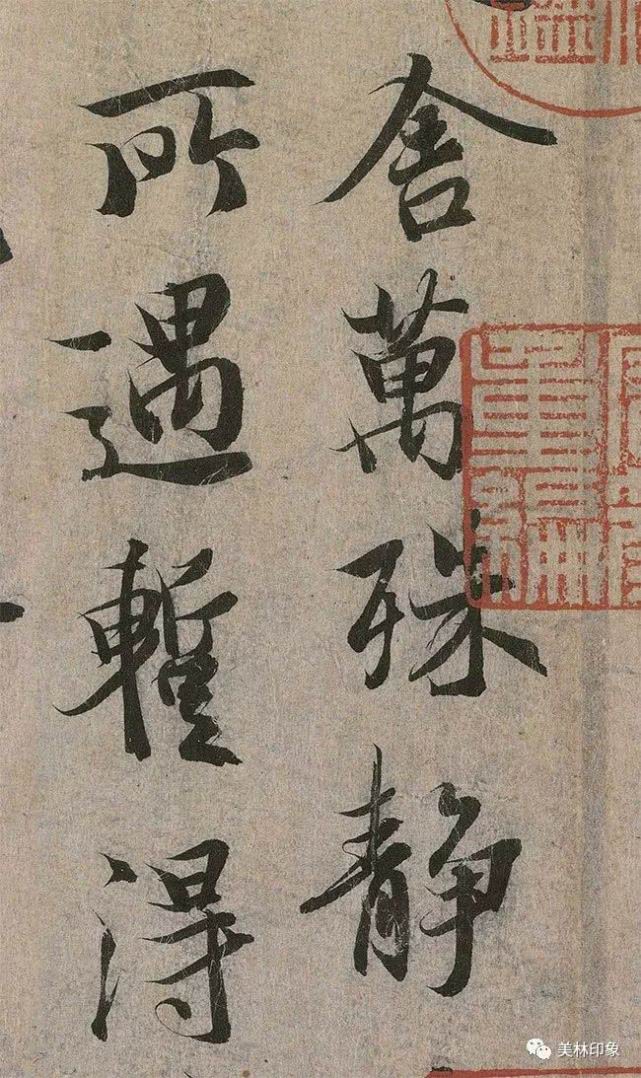 舍萬殊静
所遇蹔得
美林印象